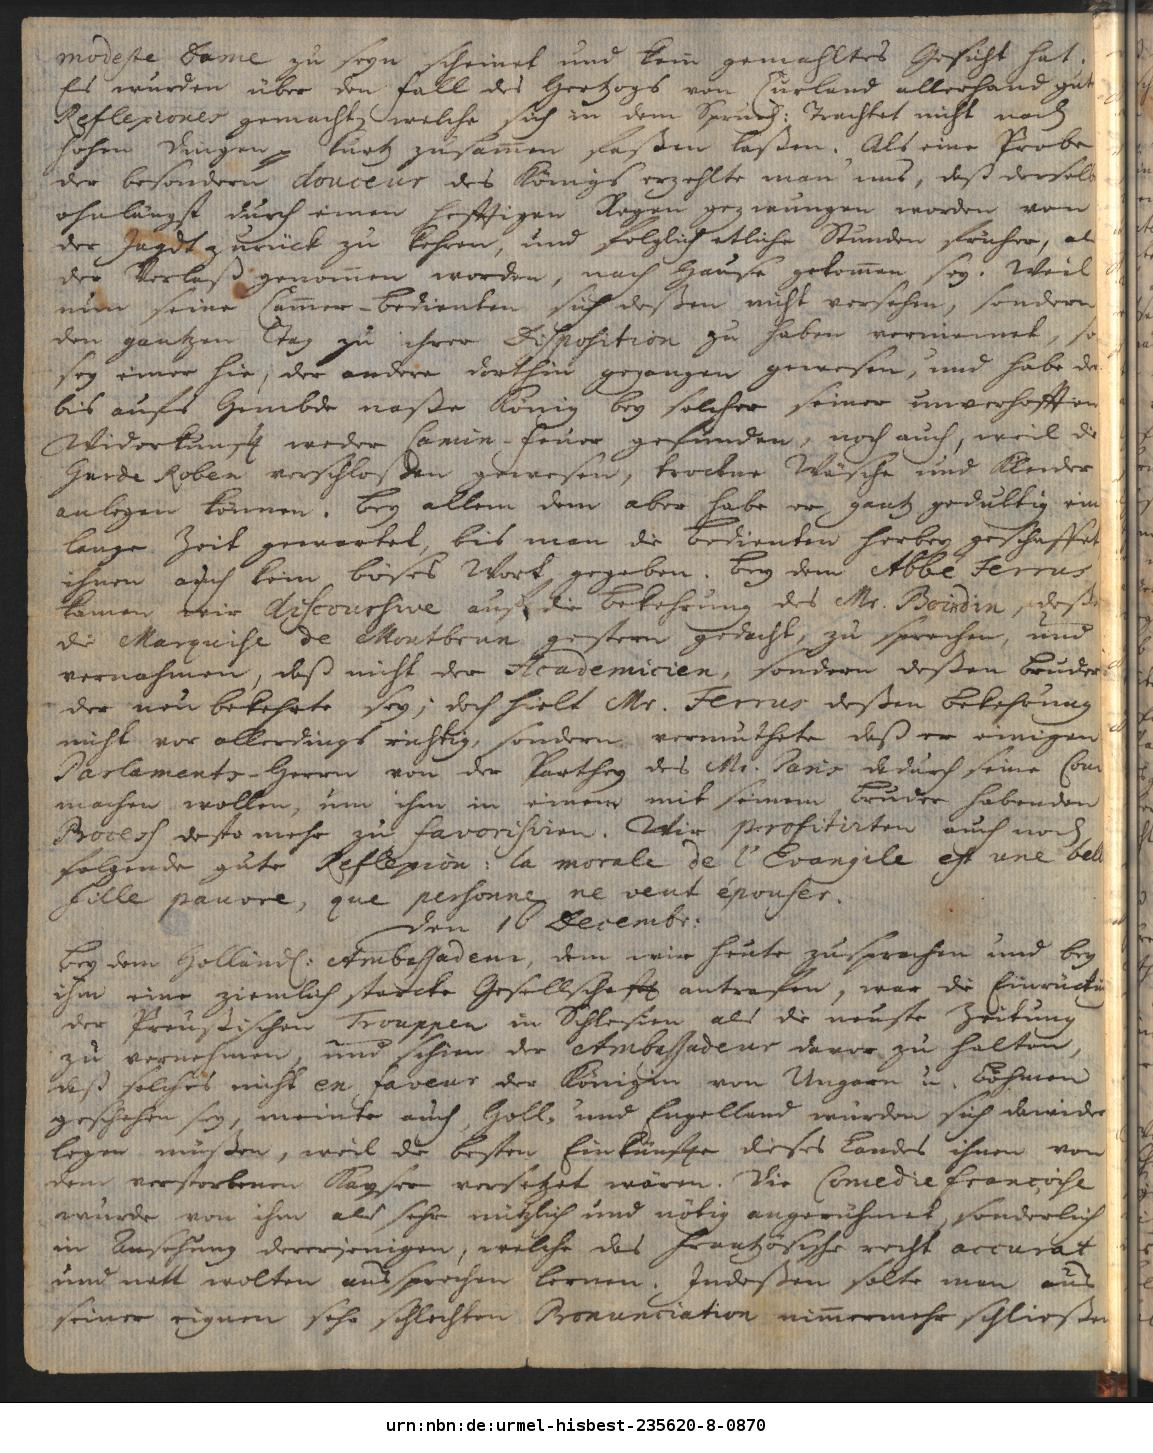 modeste Dame zu seyn scheinet und kein gemahltes Gesicht hat.
Es wurden über den Fall des Hertzogs von Curland allerhand gute
Reflexiones gemacht, welche sich in dem Spruch: Trachtet nicht nach
hohen Dingen kurtz zusam̅en faßen laßen. Als eine Probe
der besondern douceur des Königs erzehlte man uns, daß derselb
ohnlängst durch einen hefftigen Regen gezwungen worden von
der Jagdt zurück zu kehren, und folglich etliche Stunden früher, al
der Verlaß genom̅en worden, nach Hause gekom̅en sey. Weil
nun seine Cam̅er-Bedienten sich deßen nicht versehen, sondern
den gantzen Tag zu ihrer Disposition zu haben vermeinet, so
sey einer hie, der andere dorthin gegangen gewesen, und habe de
bis aufs Hembde naße König bey solcher seiner unverhofften
Widerkunfft weder Camin-Feuer gefunden, noch auch, weil die
Garde Roben verschloßen gewesen, trockne Wäsche und Kleider
anlegen können. Bey allem dem aber habe er gantz gedultig ein
lange Zeit gewartet, bis man die Bedienten herbey geschaffet
ihnen auch kein böses Wort gegeben. Bey dem Abbé Ferrus
kamen wir discoursive auf die Bekehrung des Mr. Boindin, deße
die Marquise de Montbrun gestern gedacht, zu sprechen, und
vernahmen, daß nicht der Academicien, sondern deßen Bruder
der neu bekehrte sey; doch hielt Mr. Ferrus deßen Bekehrung
nicht vor allerdings richtig, sondern vermuthete daß er einigen
Parlaments-Herrn von der Parthey des Mr. Paris dadurch seine Cour
machen wollen, um ihm in einem mit seinem Bruder habenden
Process desto mehr zu favorisiren. Wir profitirten auch noch
folgende gute Reflexion: la morale de l'Evangile est une bell
fille pauvre, que personne ne veut épouser.
den 16 Decembr:
Bey dem Holländ: Ambassadeur, dem wir heute zusprachen und bey
ihm eine ziemlich starcke Gesellschafft antrafen, war die Einrückun
der Preußischen Trouppen in Schlesien als die neuste Zeitung
zu vernehmen, und schien der Ambassadeur davor zu halten,
daß solches nicht en faveur der Königin von Ungarn u. Böhmen
geschehen sey, meinte auch, Holl. und Engelland würden sich dawider
legen müßen, weil die besten Einkünffte dieses Landes ihnen von
dem verstorbenen Kayser versetzet wären. Die Comedie françoise
wurde von ihm als sehr nützlich und nötig angerühmet, sonderlich
in Ansehung dererjenigen, welche das Frantzösische recht accurat
und nett wolten aussprechen lernen. Indeßen solte man aus
seiner eignen sehr schlechten Pronunciation nim̅ermehr schließen
urn:nbn:de:urmel-hisbest-235620-8-0870